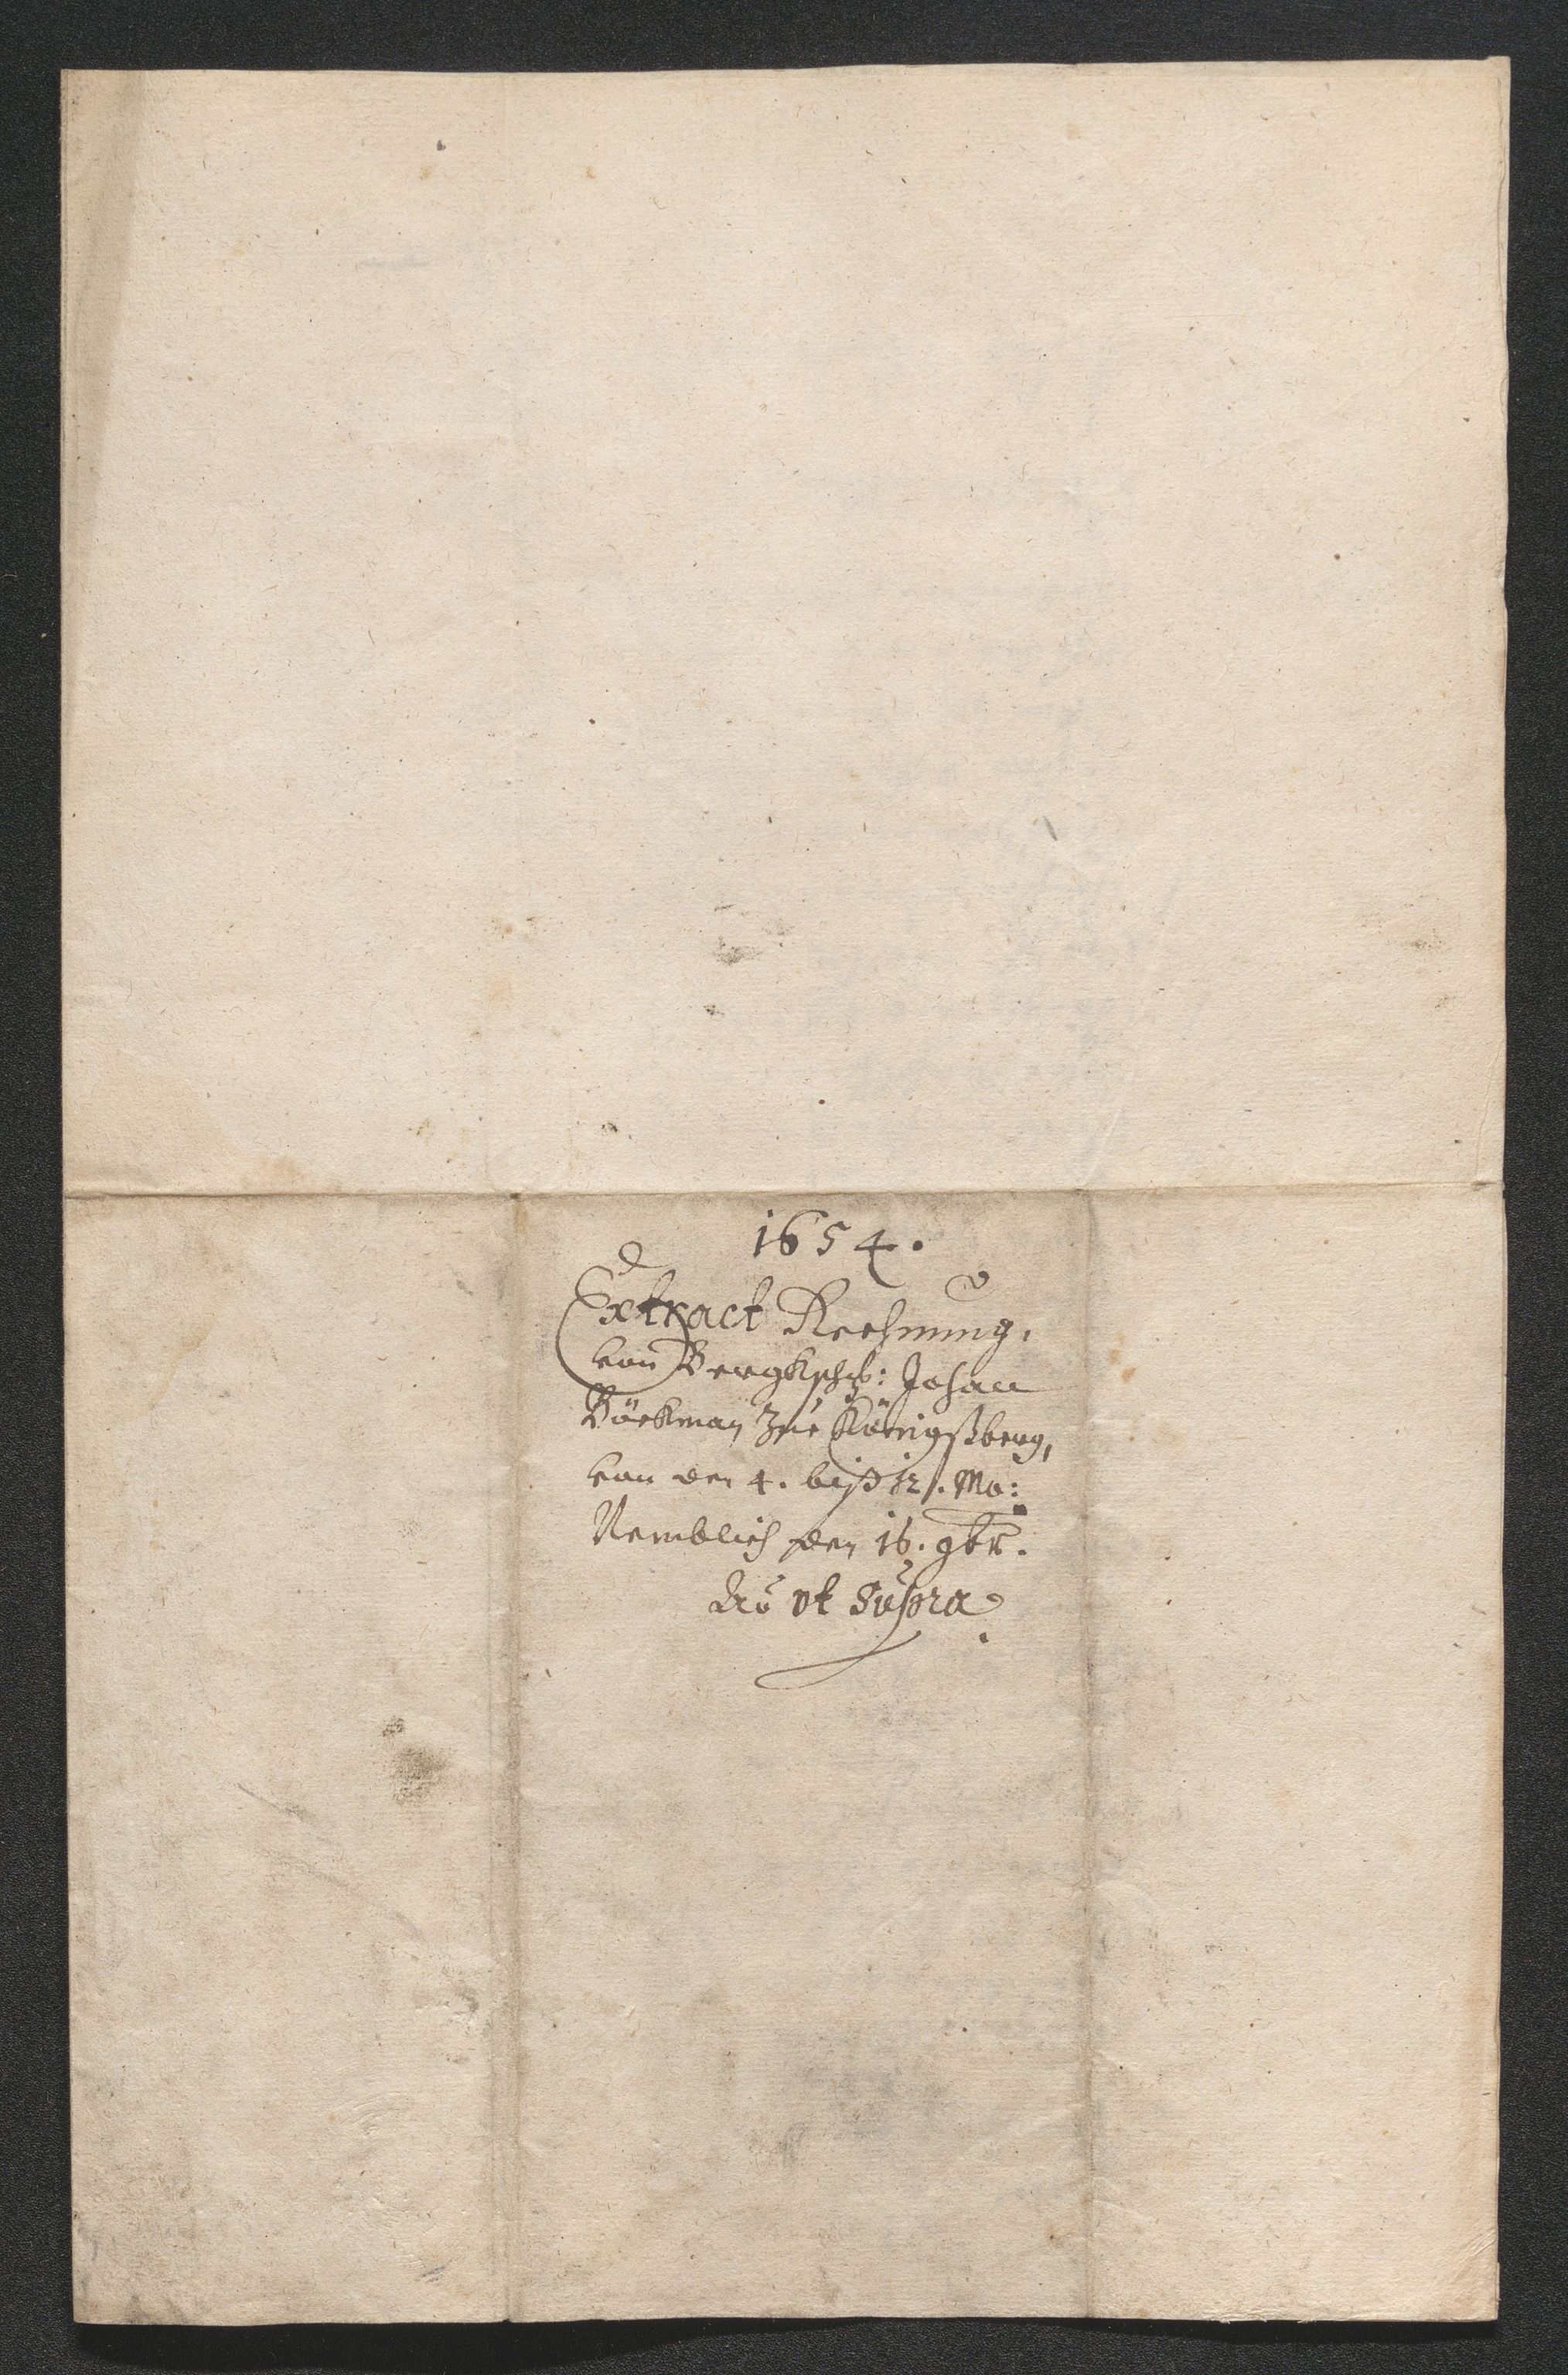 1654.
Extract Rechnung,
von Bergkschr: Johan
Böckman zue Königßberg,
von den 4. biß 12. Mo:
Nemblich den 16. 9br.
Ao ut Supra